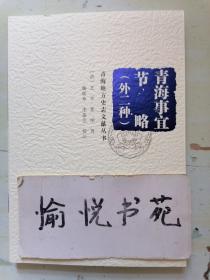 青海事宜
节略
（外二种）
青海地方史志文献丛书
愉悦书苑